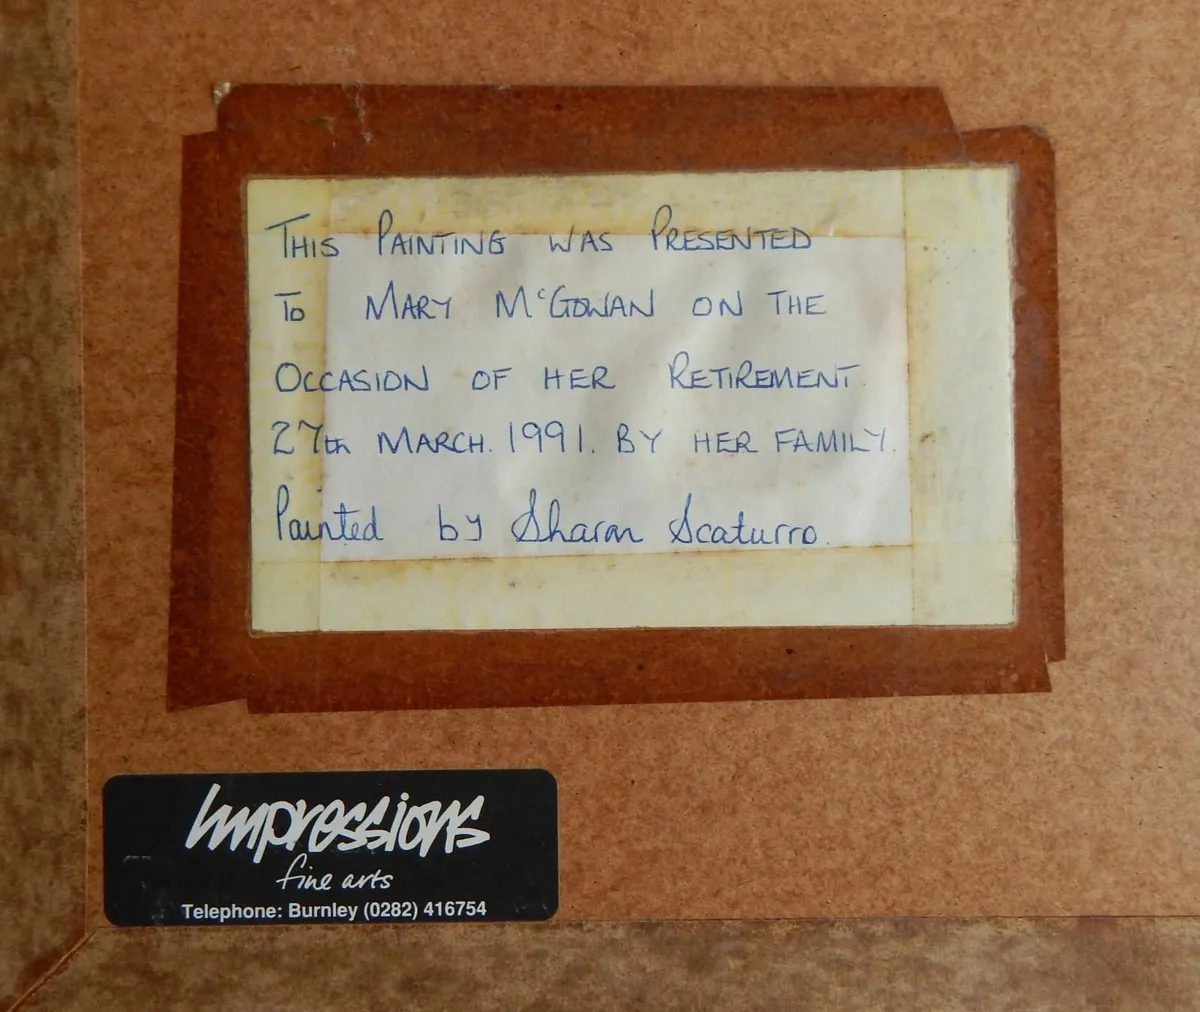 THIS PAINTING WAS PRESENTED
TO MARY McGOWAN ON THE
OCCASION OF HER RETIREMENT.
27th MARCH. 1991. BY HER FAMILY.
Painted by Sharon Scaturro.
Impressions
fine arts
Telephone: Burnley (0282) 416754